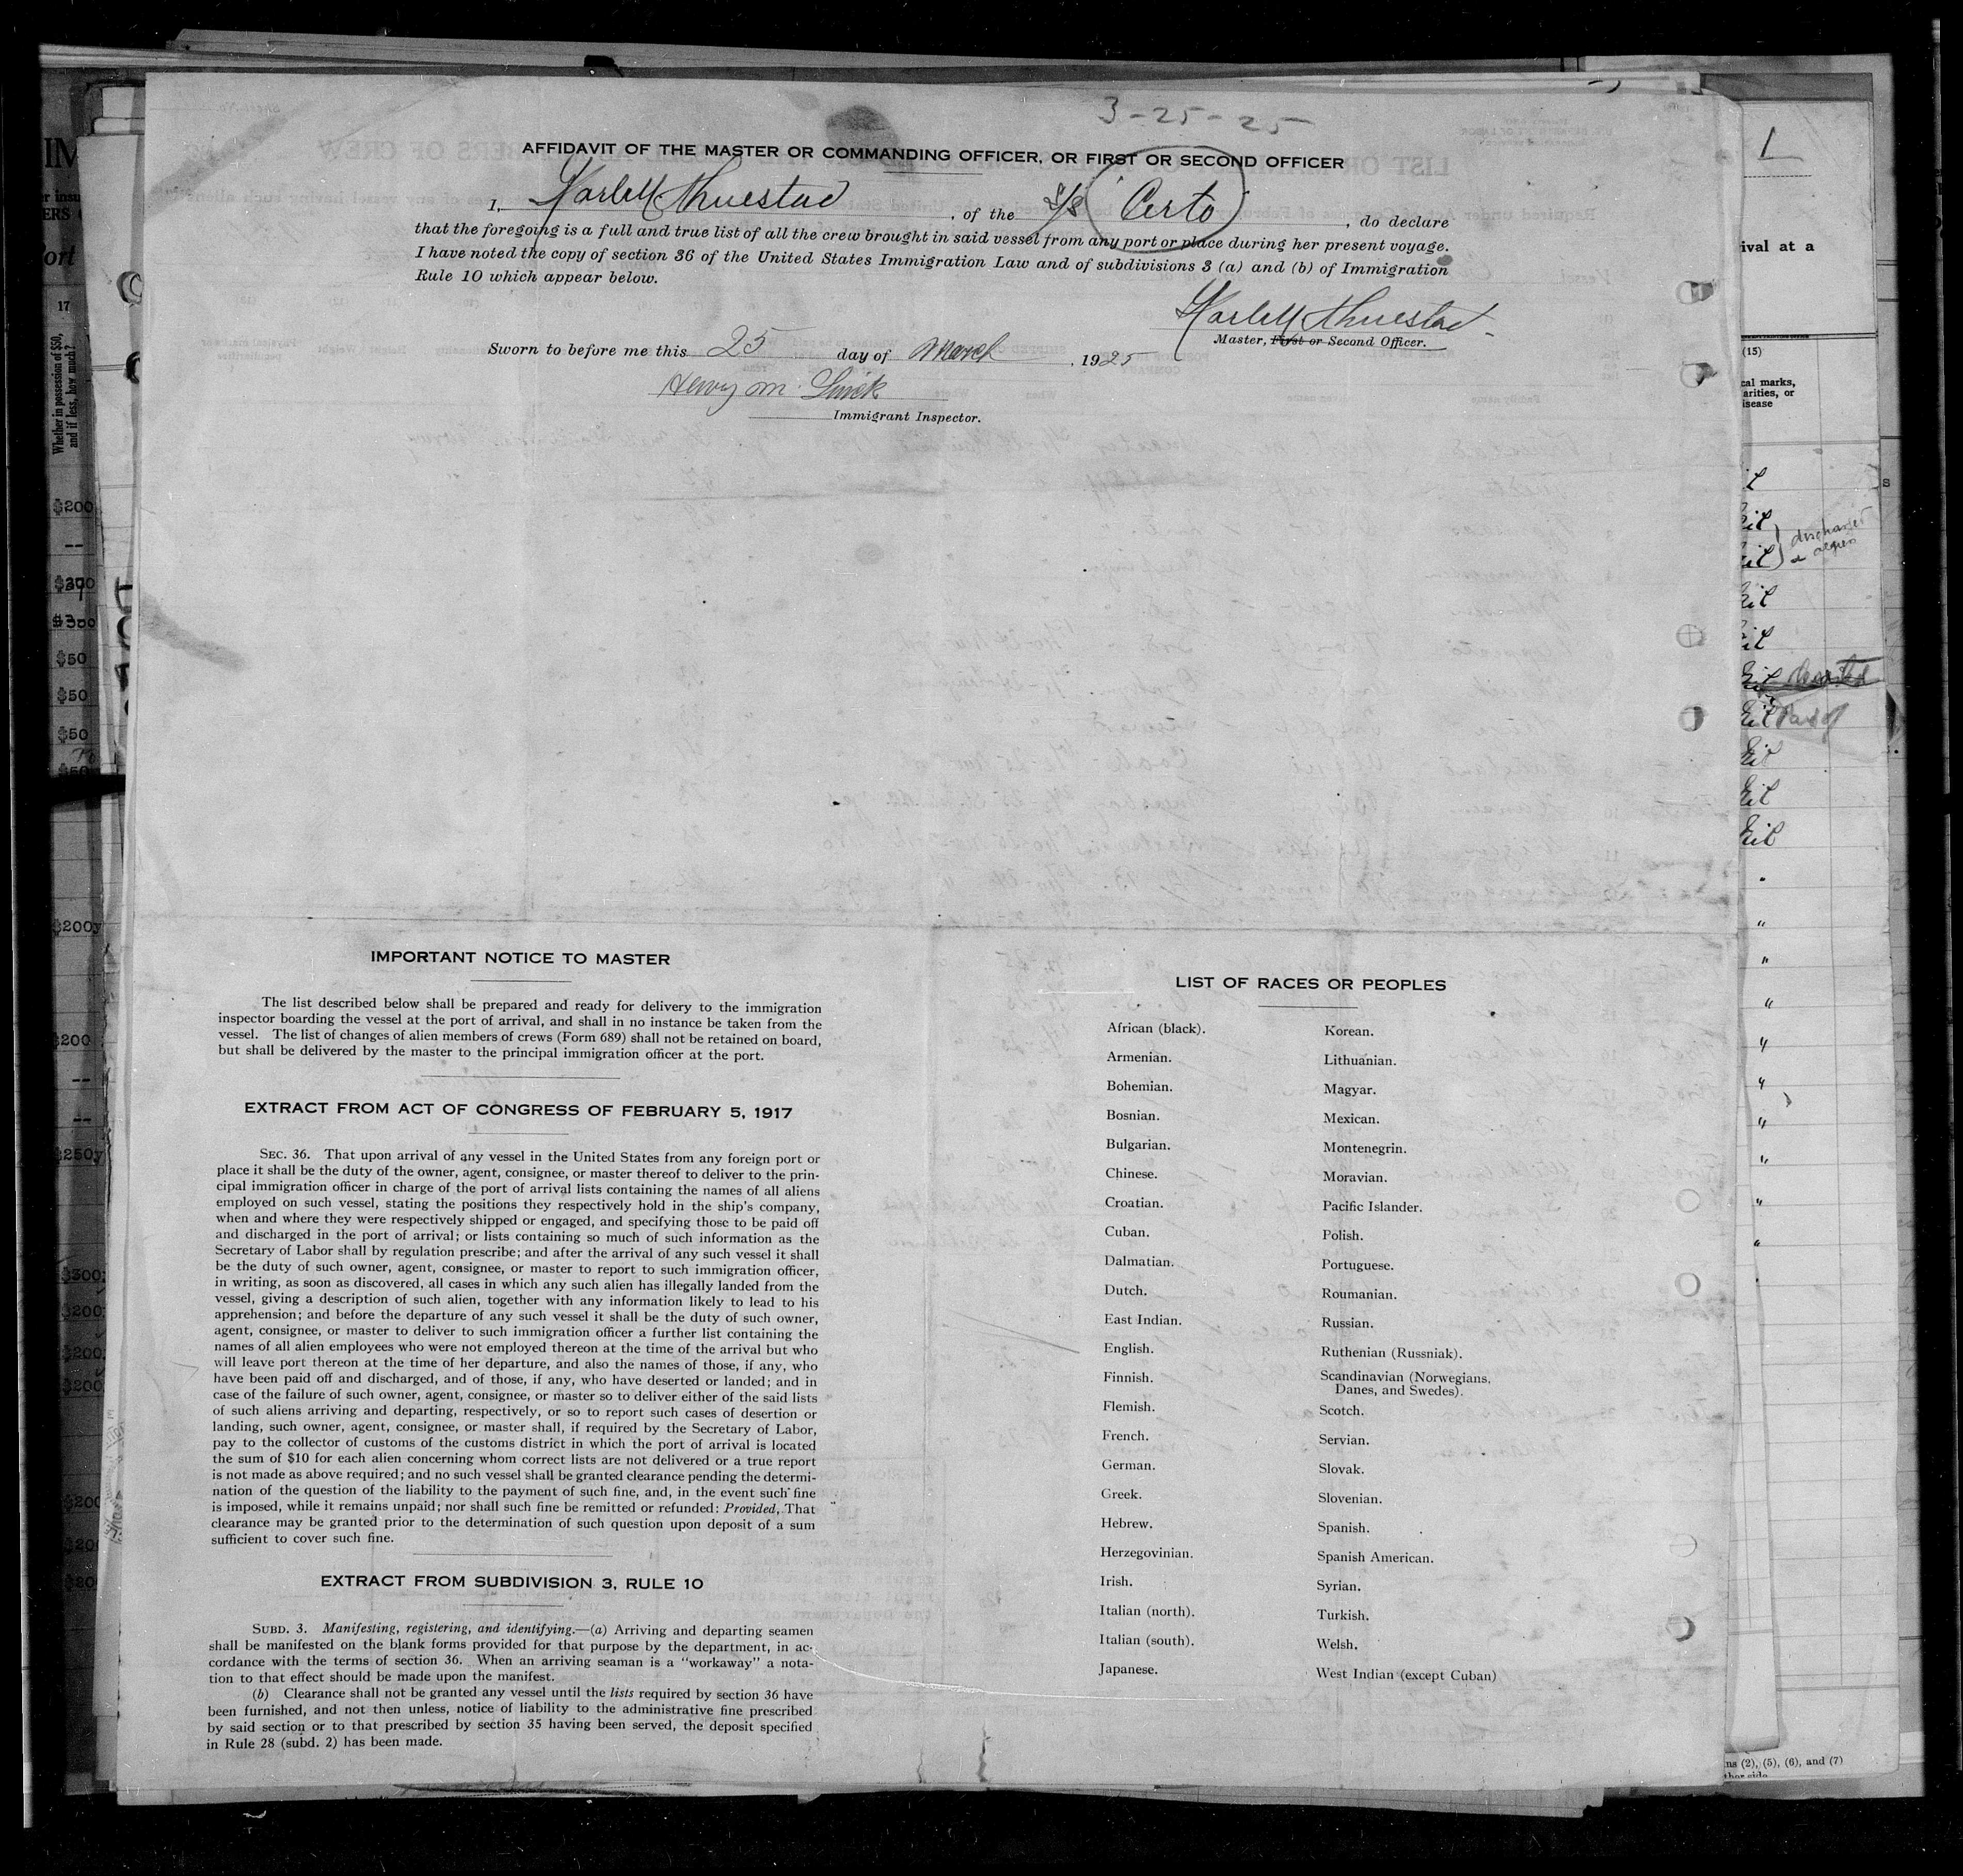 3-25-25
AFFIDAVIT OF THE MASTER OR COMMANDING OFFICER, OR FIRST OR SECOND OFFICER
I, , of the S/S Certo , do declare
that the foregoing is a full and true list of all the crew brought in said vessel from any port or place during her present voyage.
I have noted the copy of section 36 of the United States Immigration Law and of subdivisions 3 (a) and (b) of Immigration
Rule 10 which appear below.
Master, First or Second Officer.
Sworn to before me this 25 day of March , 1925
Henry M.
Immigrant Inspector.
IMPORTANT NOTICE TO MASTER
The list described below shall be prepared and ready for delivery to the immigration
inspector boarding the vessel at the port of arrival, and shall in no instance be taken from the
vessel. The list of changes of alien members of crews (Form 689) shall not be retained on board,
but shall be delivered by the master to the principal immigration officer at the port.
EXTRACT FROM ACT OF CONGRESS OF FEBRUARY 5, 1917
SEC. 36. That upon arrival of any vessel in the United States from any foreign port or
place it shall be the duty of the owner, agent, consignee, or master thereof to deliver to the prin-
cipal immigration officer in charge of the port of arrival lists containing the names of all aliens
employed on such vessel, stating the positions they respectively hold in the ship's company,
when and where they were respectively shipped or engaged, and specifying those to be paid off
and discharged in the port of arrival; or lists containing so much of such information as the
Secretary of Labor shall by regulation prescribe; and after the arrival of any such vessel it shall
be the duty of such owner, agent, consignee, or master to report to such immigration officer,
in writing, as soon as discovered, all cases in which any such alien has illegally landed from the
vessel, giving a description of such alien, together with any information likely to lead to his
apprehension; and before the departure of any such vessel it shall be the duty of such owner,
agent, consignee, or master to deliver to such immigration officer a further list containing the
names of all alien employees who were not employed thereon at the time of the arrival but who
will leave port thereon at the time of her departure, and also the names of those, if any, who
have been paid off and discharged, and of those, if any, who have deserted or landed; and in
case of the failure of such owner, agent, consignee, or master so to deliver either of the said lists
of such aliens arriving and departing, respectively, or so to report such cases of desertion or
landing, such owner, agent, consignee, or master shall, if required by the Secretary of Labor,
pay to the collector of customs of the customs district in which the port of arrival is located
the sum of $10 for each alien concerning whom correct lists are not delivered or a true report
is not made as above required; and no such vessel shall be granted clearance pending the determi-
nation of the question of the liability to the payment of such fine, and, in the event such fine
is imposed, while it remains unpaid; nor shall such fine be remitted or refunded: Provided, That
clearance may be granted prior to the determination of such question upon deposit of a sum
sufficient to cover such fine.
EXTRACT FROM SUBDIVISION 3, RULE 10
SUBD. 3. Manifesting, registering, and identifying.—(a) Arriving and departing seamen
shall be manifested on the blank forms provided for that purpose by the department, in ac-
cordance with the terms of section 36. When an arriving seaman is a "workaway" a nota-
tion to that effect should be made upon the manifest.
(b) Clearance shall not be granted any vessel until the lists required by section 36 have
been furnished, and not then unless, notice of liability to the administrative fine prescribed
by said section or to that prescribed by section 35 having been served, the deposit specified
in Rule 28 (subd. 2) has been made.
LIST OF RACES OR PEOPLES
African (black).
Armenian.
Bohemian.
Bosnian.
Bulgarian.
Chinese.
Croatian.
Cuban.
Dalmatian.
Dutch.
East Indian.
English.
Finnish.
Flemish.
French.
German.
Greek.
Hebrew.
Herzegovinian.
Irish.
Italian (north).
Italian (south).
Japanese.
Korean.
Lithuanian.
Magyar.
Mexican.
Montenegrin.
Moravian.
Pacific Islander.
Polish.
Portuguese.
Roumanian.
Russian.
Ruthenian (Russniak).
Scandinavian (Norwegians,
Danes, and Swedes).
Scotch.
Servian.
Slovak.
Slovenian.
Spanish.
Spanish American.
Syrian.
Turkish.
Welsh.
West Indian (except Cuban)
17
Whether in possession of $50,
and if less, how much?
$200
$50
$50
$50
$200
rival at a
(15)
cal marks,
arities, or
isease
(2), (5), (6), and (7)